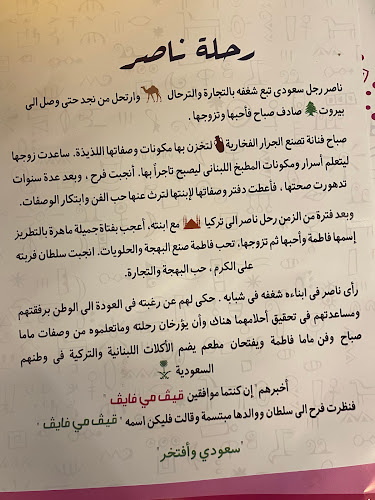 رحلة ناصر
ناصر رجل سعودى تبع شغفه بالتجارة والترحال وارتحل من نجد حتى وصل الى
بيروت صادف صباح فأحبها وتزوجها .
صباح فنانة تصنع الجرار الفخارية لتخزن بها مكونات وصفاتها اللذيذة. ساعدت زوجها
ليتعلم أسرار ومكونات المطبخ اللبنانى ليصبح تاجراً بها. أنجبت فرح ، وبعد عدة سنوات
تدهورت صحتها ، فأعطت دفتر وصفاتها لإبنتها لترث عنها حب الفن وابتكار الوصفات.
وبعد فترة من الزمن رحل ناصر الى تركيا مع ابنته، أعجب بفتاة جميلة ماهرة بالتطريز
إسمها فاطمة وأحبها ثم تزوجها. تحب فاطمة صنع البهجة والحلويات. انجبت سلطان فربته
على الكرم ، حب البهجة والتجارة.
رأى ناصر فى ابناءه شغفه فى شبابه . حكى لهم عن رغبته فى العودة الى الوطن برفقتهم
ومساعدتهم فى تحقيق أحلامهما هناك وأن يؤرخان رحلته وماتعلموه من وصفات ماما
صباح وفن ماما فاطمة ويفتحان مطعم يضم الأكلات اللبنانية والتركية فى وطنهم
السعودية
أخبرهم "إن كنتما موافقين قيڤ مي فايڤ "
فنظرت فرح إلى سلطان ووالدها مبتسمة وقالت فليكن اسمه " قيڤ مي فايڤ "
"سعودي وأفتخر"